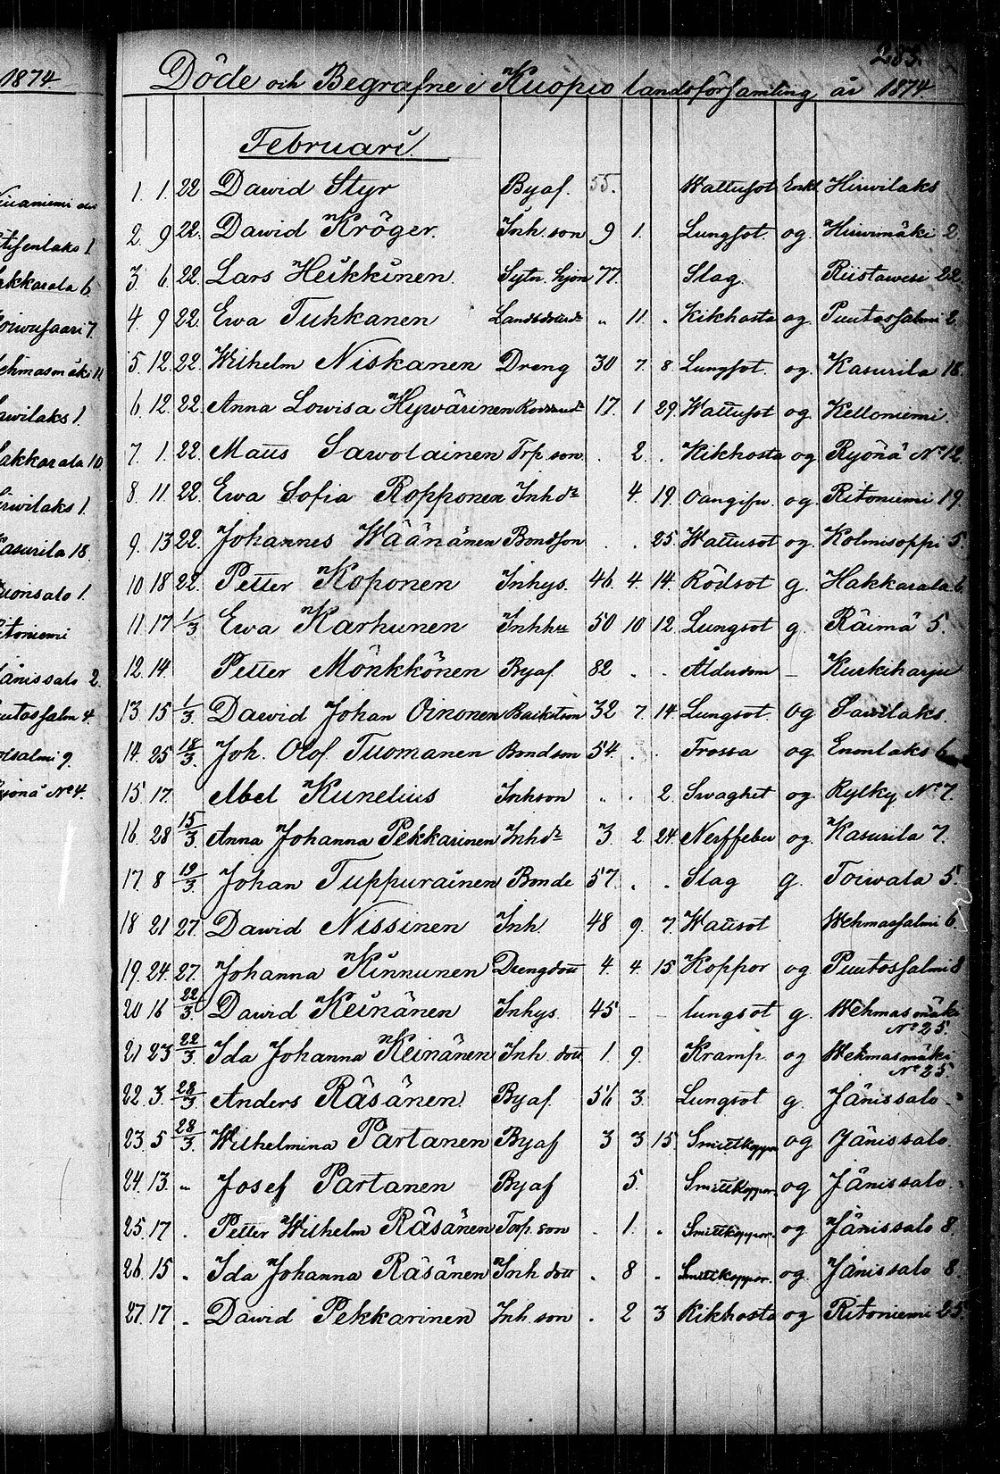 285.
1874
Döde och Begrafne i Kuopio landsförsamling år 1874
Februari.
1. 1. 22 Dawid Styr Byaf. 55. Wattusot Enkl. Hirwilaks
2. 9 22. Dawid Kröger. Inh. son 9 1. Lungsot. og Hirwimäki 2.
3. 6. 22. Lars Heikkinen. Sytn. hjon 77. Slag. Rustawesi 22
4. 9 22. Ewa Tuhkanen " 11. . Kikhosta og Puutossalmi 2.
5. 12. 22. Wilhelm Niskanen Dreng 30 7. 8. Lungsot. og. Kasurila 18.
6. 12. 22. Anna Lowisa Hywärinen 17. 1 29. Wattusot og Kelloniemi.
7. 1. 22. Matts Sawolainen Torp. son . 2. . Kikhosta og Ryönä No 12.
8. 11. 22. Ewa Sofia Ropponen Inh dr 4. 19. og Ritoniemi 19.
9. 13 22. Johannes Wäänänen Bondson . . 25. Wattusot og Kolmisoppi 5.
10 18 22. Petter Koponen Inhys. 46 4 14. Rödsot g. Hakkarala 6.
11. 17 1/3 Ewa Karhunen Inhhu 50 10 12. Lungsot g. Räimä 5.
12. 14. Petter Mönkkönen Byaf. 82 . . Ålderdom – Kurkiharju
13. 15 1/3 Dawid Johan Oinonen 32 7. 14. Lungsot. og Sawilaks
14. 25 18/3. Joh. Olof Tuomanen Bondson 54. . . Frossa og Enonlaks 6
15. 17. Abel Kunelius Inhson „ . 2. Swaghet og Rylky No 7.
16 28 15/3 Anna Johanna Pekkarinen Inh dr 3. 2 24. Nerffeber og Kasurila 7.
17. 8 19/3. Johan Tuppurainen Bonde 57. . . Slag g. Toiwala 5.
18 21 27. Dawid Nissinen Inh. 48 9. 7. Wattsot Wehmassalmi 6.
19. 24. 27. Johanna Kinnunen Drengdott 4. 4. 15 Koppor og Puutossalmi 8
20 16 22/3. Dawid Keinänen Inhys. 45 – – lungsot g. Wehmasmäki
No 25.
21 23 22/3. Ida Johanna Keinänen Inh. dott 1. 9. Kramp. og Wehmasmäki
No 25.
22. 3. 28/3 Anders Räsänen. Byaf. 56 3. Lungsot g. Jänissalo
23. 5 28/3. Wilhelmina Partanen Byaf 3 3 15. Smittkoppor og Jänissalo
24. 13. „ Josef Partanen Byaf 5. Smittkoppor. og Jänissalo.
25. 17 . Petter Wilhelm Räsänen Torp. son . 1. . Smittkoppor. og Jänissalo 8.
26. 15 . Ida Johanna Räsänen Inh dott . 8 . Smittkoppor. og Jänissalo 8.
27. 17 . Dawid Pekkarinen Inh. son . 2 3 Kikhosta og Ritoniemi 25.
1.
6.
7.
11
1.
akkarala 10.
irwilaks 1.
asurila 18.
uonsalo 1.
itoniemi
änissalo 2.
utossalm 4.
salmi 9.
yönä No 4.